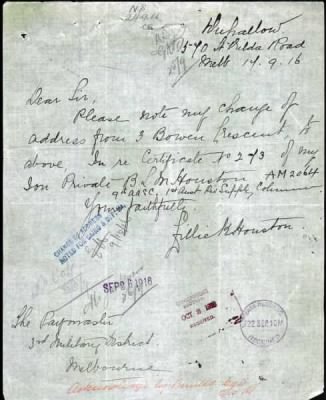 570 St Kilda Road
Melb 14.9.16
Dear Sir,
Please note my change of
address from 3 Bowen Crescent to
above. In re Certificate No 293 of my
Son Private B. L. M. Houston AM 2064
9th AASC, 1st Aust Div Supply Column
Yours faithfully
Lillie K Houston.
CHANGE OF ADDRESS
SEP 2 1916
OCT 3 1916
RECEIVED
22 SEP 1916
The Paymaster
3rd Military District
Melbourne